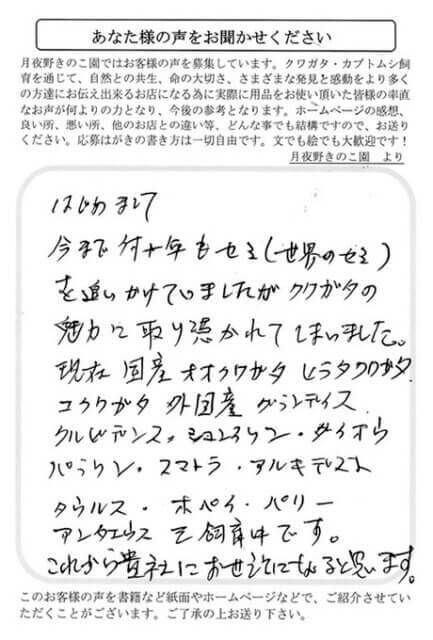 あなた様の声をお聞かせください
月夜野きのこ園ではお客様の声を募集しています。クワガタ・カブトムシ飼
育を通じて、自然との共生、命の大切さ、さまざまな発見と感動をより多く
の方達にお伝え出来るお店になる為に実際に用品をお使い頂いた皆様の率直
なお声が何よりの力となり、今後の参考となります。ホームページの感想、
良い所、悪い所、他のお店との違い等、どんな事でも結構ですので、お送り
ください。応募はがきの書き方は一切自由です。文でも絵でも大歓迎です！
月夜野きのこ園 より
はじめまして
今まで何十年もセミ(世界のセミ)
を追いかけていましたがクワガタの
魅力に取り憑かれてしまいました。
現在 国産 オオクワガタ ヒラタクワガタ
コクワガタ 外国産 グランディス
クルビデンス・ ・ダイオウ
パラワン・スマトラ・アルキデス
タウルス・ホペイ・パリー
アンタエウス を飼育中です。
これから貴社にお世話になると思います。
このお客様の声を書籍など紙面やホームページなどで、ご紹介させてい
ただくことがございます。ご了承の上お送り下さい。